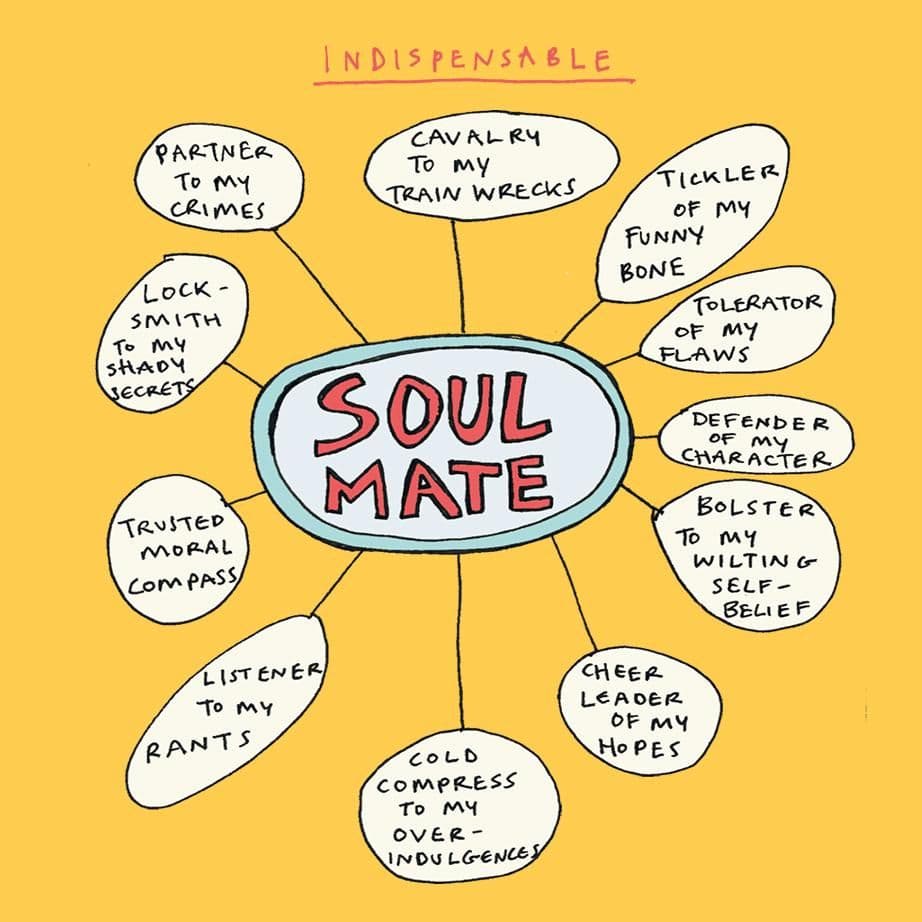 INDISPENSABLE
PARTNER
TO MY
CRIMES
CAVALRY
TO MY
TRAIN WRECKS
TICKLER
OF MY
FUNNY
BONE
LOCK-
SMITH
TO MY
SHADY
SECRETS
TOLERATOR
OF MY
FLAWS
SOUL
MATE
DEFENDER
OF MY
CHARACTER
TRUSTED
MORAL
COMPASS
BOLSTER
TO MY
WILTING
SELF-
BELIEF
LISTENER
TO MY
RANTS
COLD
COMPRESS
TO MY
OVER-
INDULGENCES
CHEER
LEADER
OF MY
HOPES